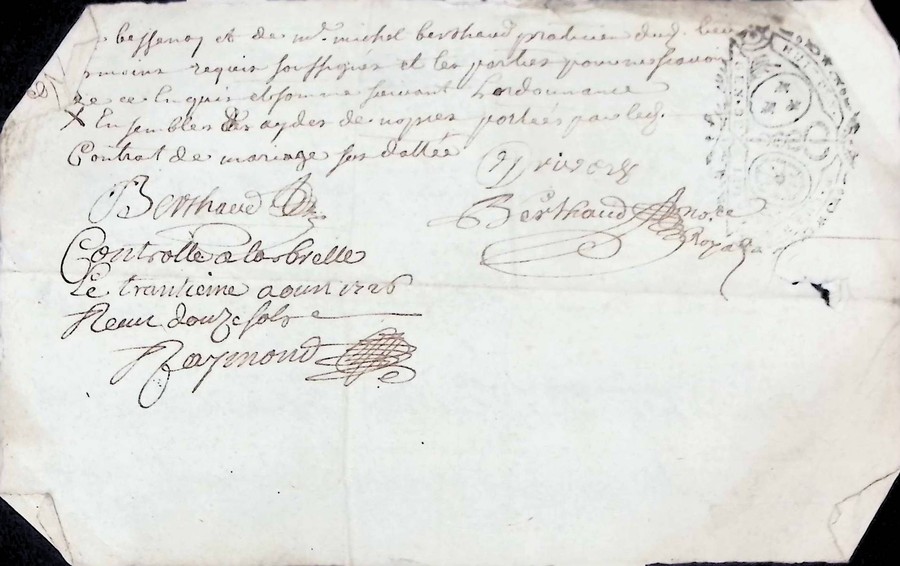 bessenay et de mr michel berthaud praticien dud. lieu
tesmoins requis soussignes et les parties pour ne scavoir
de ce enquis et somme suivant Lordonnance
X Ensembles les aydes de nopces portées par led.
Contrat de mariage sus datté
Berthaud
Berthaud nore
Royal
Controlle a larbrelle
Le trantieme aoust 1726
Receu douze sols
Raymond